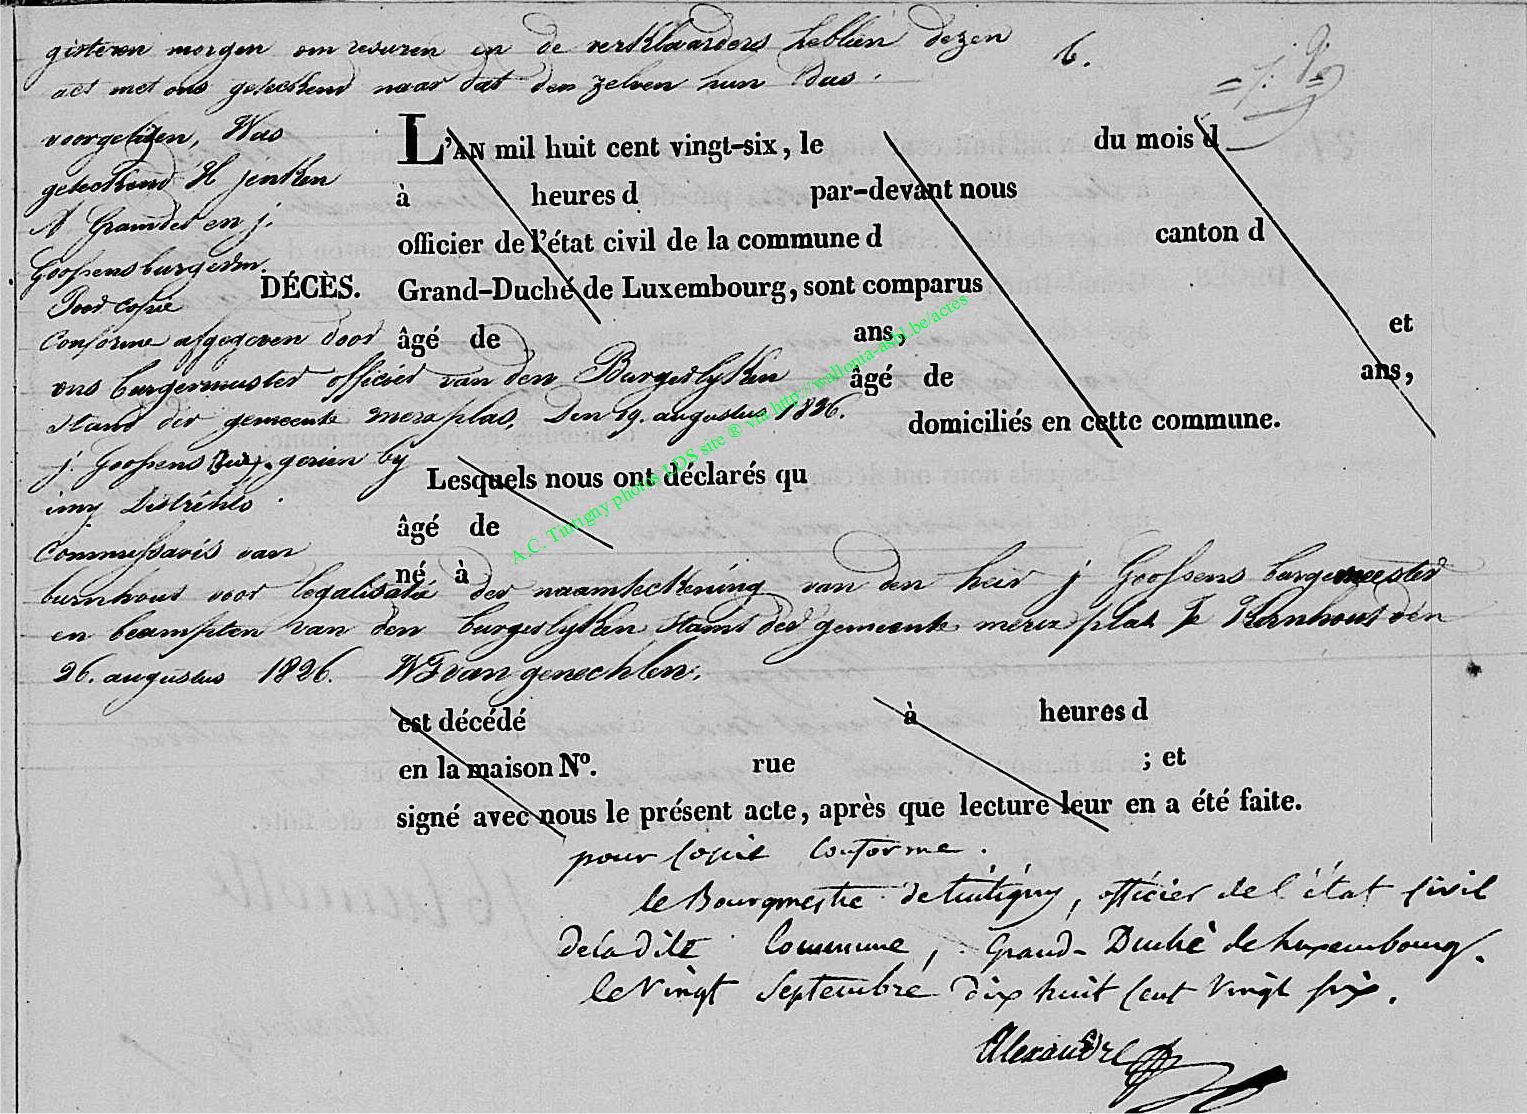 gisteren morgen om uren en de verklaarders hebben dezen
act met ons geteekend naar dat den zelven hun Was
voorgelezen, Was
geteekend H Jenken
A en j.
Goossens burgerm.
Voor copie
conforme afgegeven door
ons burgermeester officier van den Burgerlyken
stand der gemeente merxplas, den 19. augustus 1826.
j. Goossens gezien by
my Districts
Commissaris van
turnhout voor legalisatie der naamteekening van den heer j Goossens burgemeester
en beampten van den burgerlyken stand der gemeente merxplas Te Turnhout den
26. augustus 1826. W van genechten.
6.
= 7: 9
DÉCÈS.
L'AN mil huit cent vingt-six, le du mois d
à heures d par-devant nous
officier de l'état civil de la commune d canton d
Grand-Duché de Luxembourg, sont comparus
âgé de ans, et
âgé de ans,
domiciliés en cette commune.
Lesquels nous ont déclarés qu
âgé de
né à
est décédé à heures d
en la maison Nº. rue ; et
signé avec nous le présent acte, après que lecture leur en a été faite.
pour copie conforme.
le Bourgmestre de tintigny, officier de l'état civil
de la dite Commune, Grand-Duché de Luxembourg.
le vingt septembre dix huit cent vingt six.
Alexandre
A.C. Tintigny photos LDS site ® via http://wallonia-asbl.be/actes